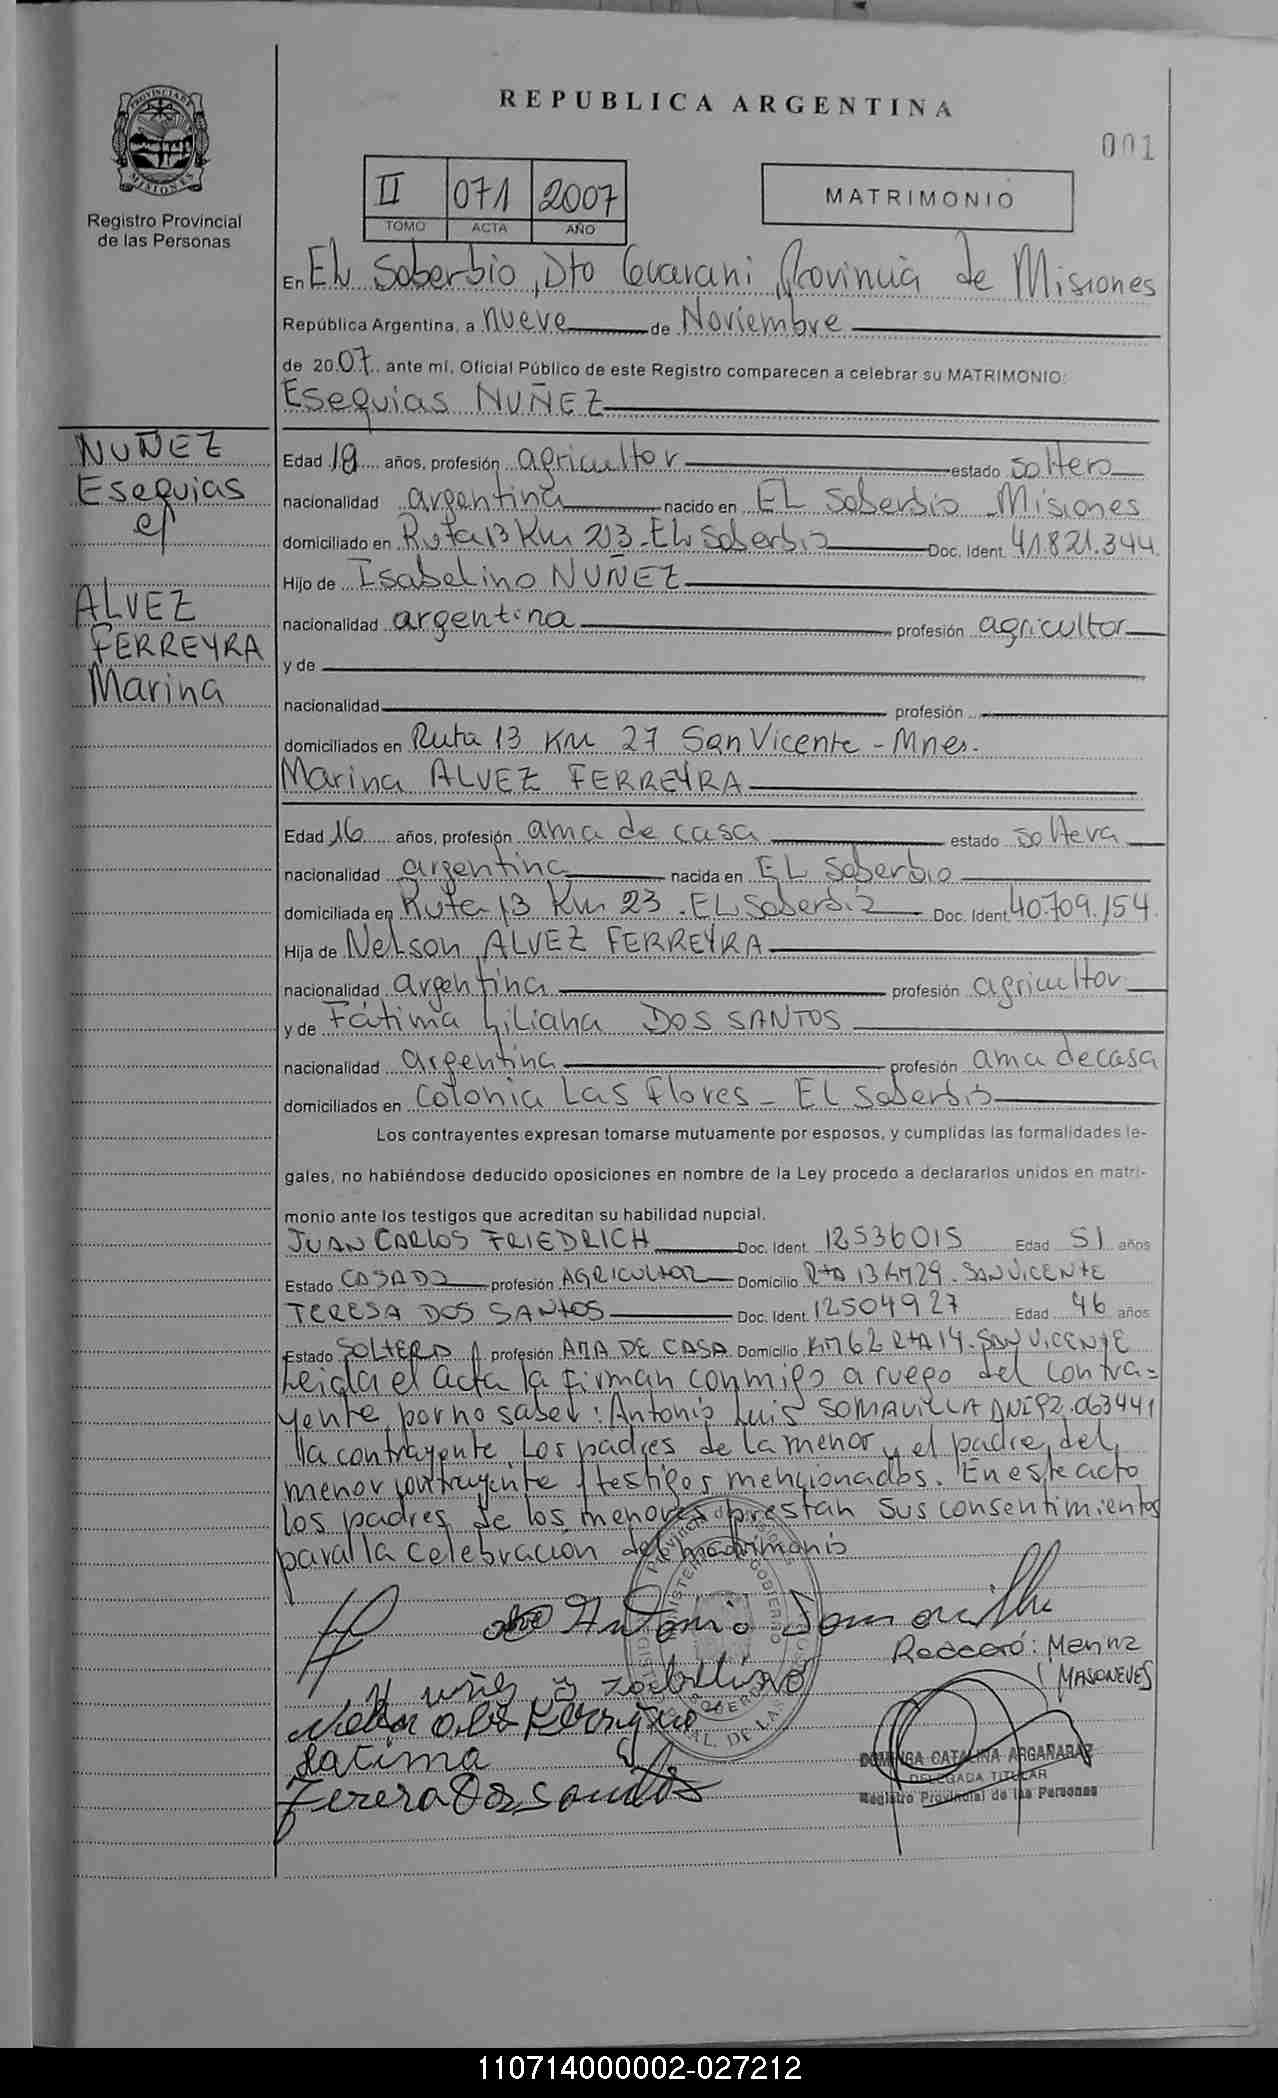 REPUBLICA ARGENTINA
001
PROVINCIA DE
MISIONES
Registro Provincial
de las Personas
II 071 2007
TOMO ACTA AÑO
MATRIMONIO
En EL Soberbio, Dto Guarani Provincia de Misiones
República Argentina, a nueve de Noviembre
de 2007, ante mí, Oficial Público de este Registro comparecen a celebrar su MATRIMONIO:
Esequias NUÑEZ
NUÑEZ
Esequias
c/
ALVEZ
FERREYRA
Marina
Edad 19 años, profesión agricultor estado soltero
nacionalidad argentina nacido en EL Soberbio - Misiones
domiciliado en Ruta 13 Km 203 - EL Soberbio Doc. Ident. 41.821.344
Hijo de Isabelino NUÑEZ
nacionalidad argentina profesión agricultor
y de
nacionalidad profesión
domiciliados en Ruta 13 Km 27 San Vicente - Mnes.
Marina ALVEZ FERREYRA
Edad 16 años, profesión ama de casa estado soltera
nacionalidad argentina nacida en EL Soberbio
domiciliada en Ruta 13 Km 23 - EL Soberbio Doc. Ident. 40.709.154
Hija de Nelson ALVEZ FERREYRA
nacionalidad argentina profesión agricultor
y de Fátima Liliana DOS SANTOS
nacionalidad argentina profesión ama de casa
domiciliados en Colonia Las Flores - EL Soberbio
Los contrayentes expresan tomarse mutuamente por esposos, y cumplidas las formalidades le-
gales, no habiéndose deducido oposiciones en nombre de la Ley procedo a declararlos unidos en matri-
monio ante los testigos que acreditan su habilidad nupcial.
JUAN CARLOS FRIEDRICH Doc. Ident. 12536015 Edad 51 años
Estado CASADO profesión AGRICULTOR Domicilio RTA 13 KM 29 - SAN VICENTE
TERESA DOS SANTOS Doc. Ident. 12504927 Edad 46 años
Estado SOLTERA profesión AMA DE CASA Domicilio KM 62 RTA 14 - SAN VICENTE
Leida el acta la firman conmigo a ruego del contra=
yente por no saber: Antonio Luis SOMAVILLA DNI 92.063441
la contrayente, los padres de la menor y el padre del
menor contrayente y testigos mencionados. En este acto
los padres de los menores prestan sus consentimientos
para la celebración del matrimonio
Antonio Somavilla
Redactó: Marina
MASONEVES
Fatima
Ferera Dos Santos
DOMINGA CATALINA ARGAÑARAZ
DELEGADA TITULAR
Registro Provincial de las Personas
110714000002-027212